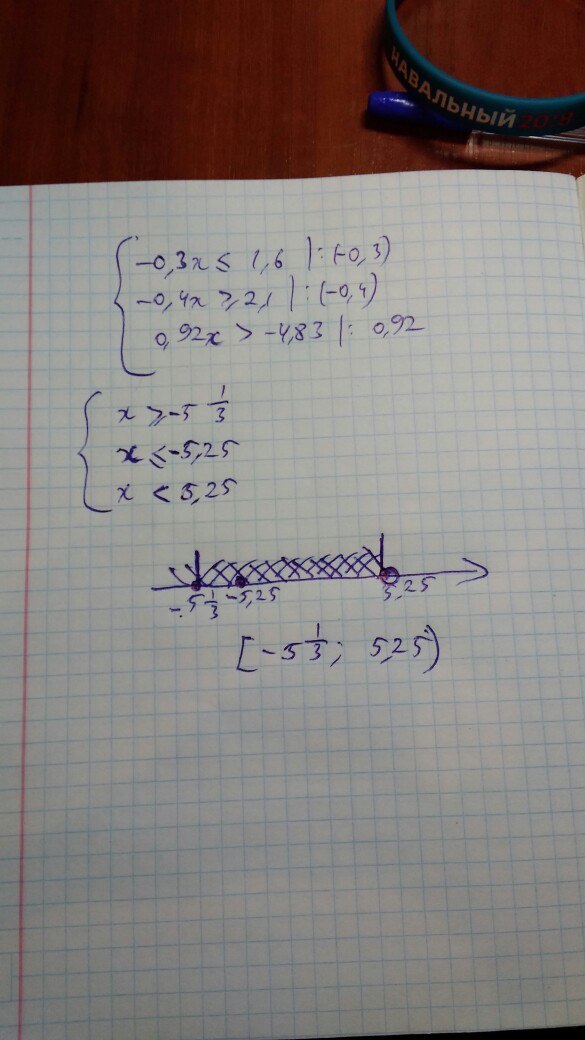 НАВАЛЬНЫЙ 20!8
-0,3x ≤ 1,6 |:(-0,3)
-0,4x ≥ 2,1 |:(-0,4)
0,92x > -4,83 |: 0,92
x ≥ -5 1/3
x ≤ -5,25
x < 5,25
-5 1/3 -5,25 5,25
[-5 1/3; 5,25)